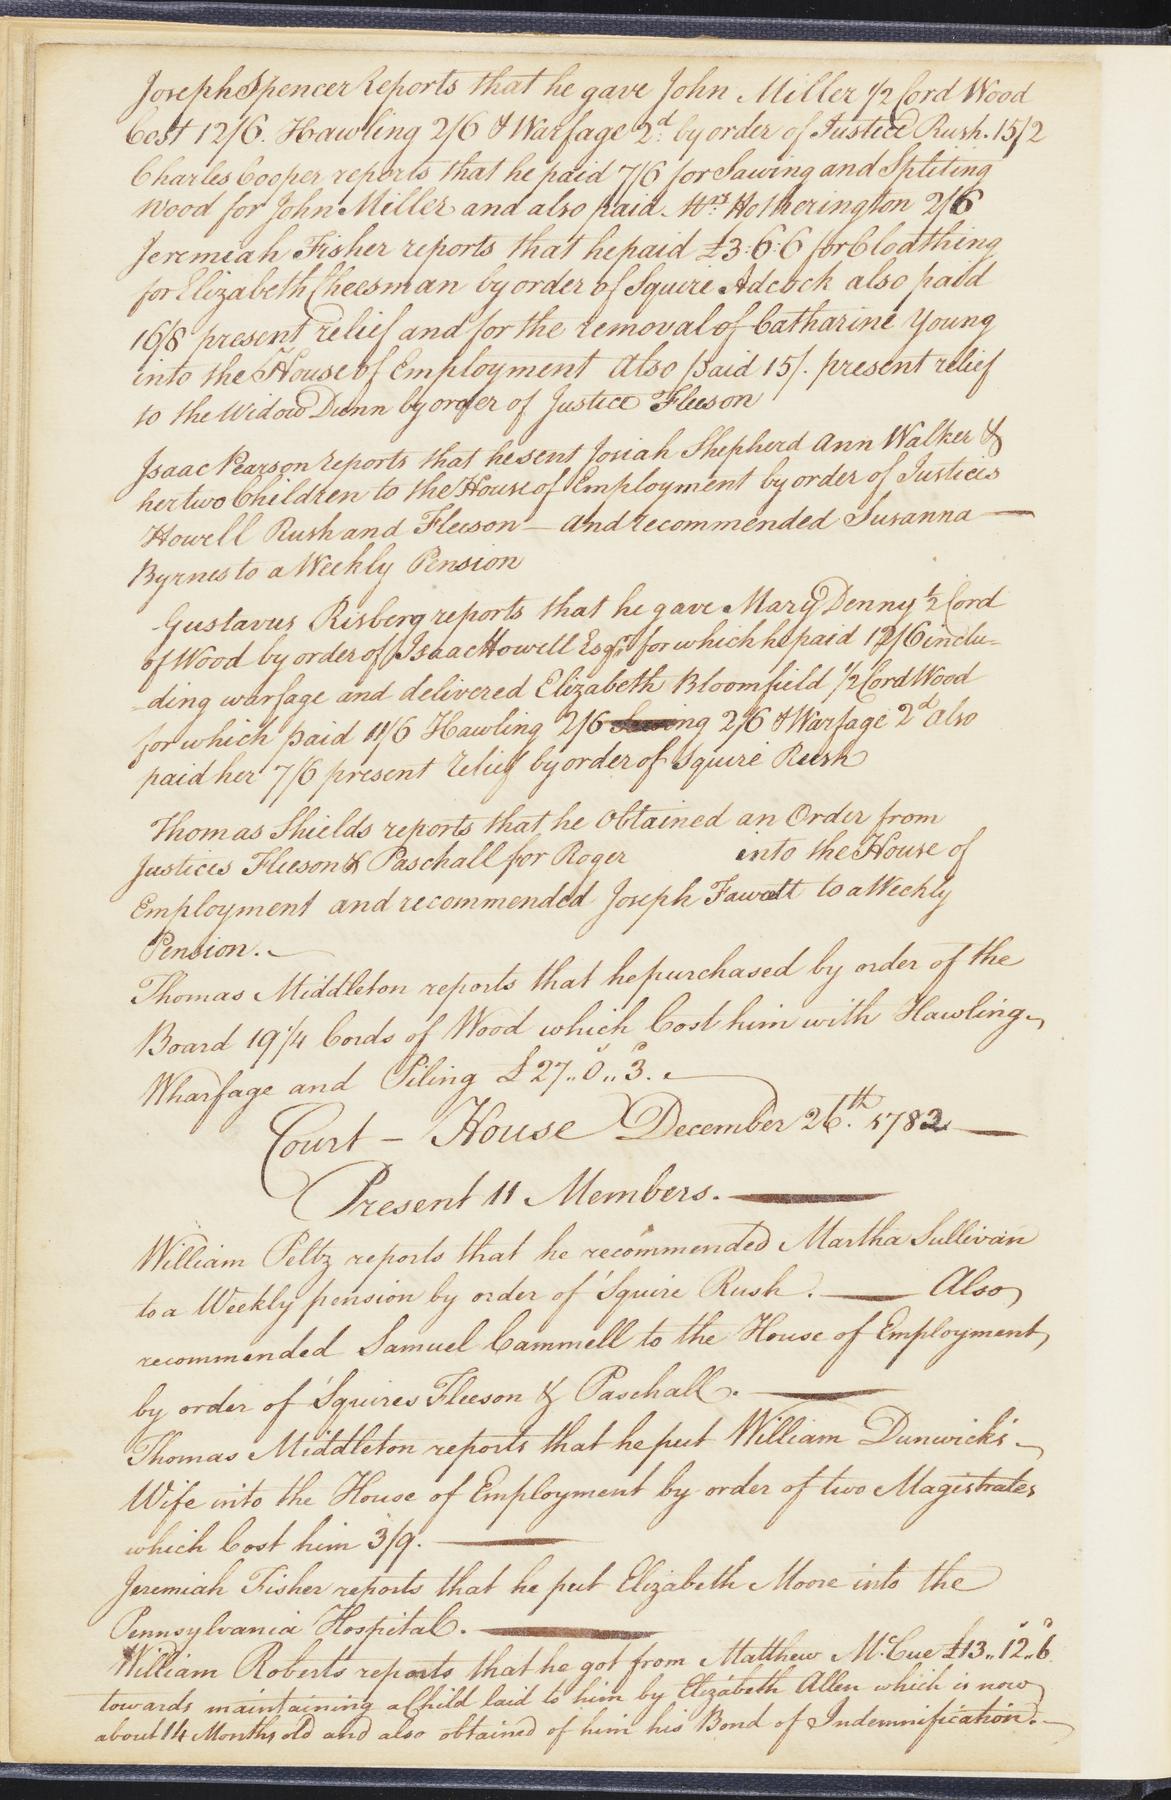 Joseph Spencer Reports that he gave John Miller 1/2 Cord Wood
Cost 12/6. Hawling 2/6 & Warfage 2d. by order of Justice Rush. 15/2
Charles Cooper reports that he paid 7/6 for Sawing and Spliting
Wood for John Miller and also paid Mrs. Hotherington 2/6
Jeremiah Fisher reports that he paid £3:6:6 for Cloathing
for Elizabeth Cheesman by order of Squire Adcock also paid
16/8 present relief and for the removal of Catharine Young
into the House of Employment also paid 15/. present relief
to the Widow Dunn by order of Justice Fleeson
Isaac Pearson reports that he sent Josiah Shepherd Ann Walker &
her two Children to the House of Employment by order of Justices
Howell Rush and Fleeson — and recommended Susanna —
Byrnes to a Weekly Pension
Gustavus Risberg reports that he gave Mary Denny 1/2 Cord
of Wood by order of Isaac Howell Esqr. for which he paid 12/6 inclu-
ding warfage and delivered Elizabeth Bloomfield 1/2 Cord Wood
for which paid 11/6 Hawling 2/6 Sawing 2/6 & Warfage 2d also
paid her 7/6 present relief by order of Squire Rush
Thomas Shields reports that he Obtained an Order from
Justices Fleeson & Paschall for Roger into the House of
Employment and recommended Joseph Fawcett to a Weekly
Pension. —
Thomas Middleton reports that he purchased by order of the
Board 19 1/4 Cords of Wood which Cost him with Hawling
Wharfage and Piling £27..0..3. —
Court - House December 26th. 1782 —
Present 11 Members. —
William Peltz reports that he recommended Martha Sullivan
to a Weekly pension by order of 'Squire Rush. — Also
recommended Samuel Cammell to the House of Employment
by order of 'Squires Fleeson & Paschall. —
Thomas Middleton reports that he put William Dunwick's
Wife into the House of Employment by order of two Magistrates
which Cost him 3/9. —
Jeremiah Fisher reports that he put Elizabeth Moore into the
Pennsylvania Hospital. —
William Roberts reports that he got from Matthew McCue £13..12..6
towards maintaining a Child laid to him by Elizabeth Allen which is now
about 14 Months old and also obtained of him his Bond of Indemnification. —